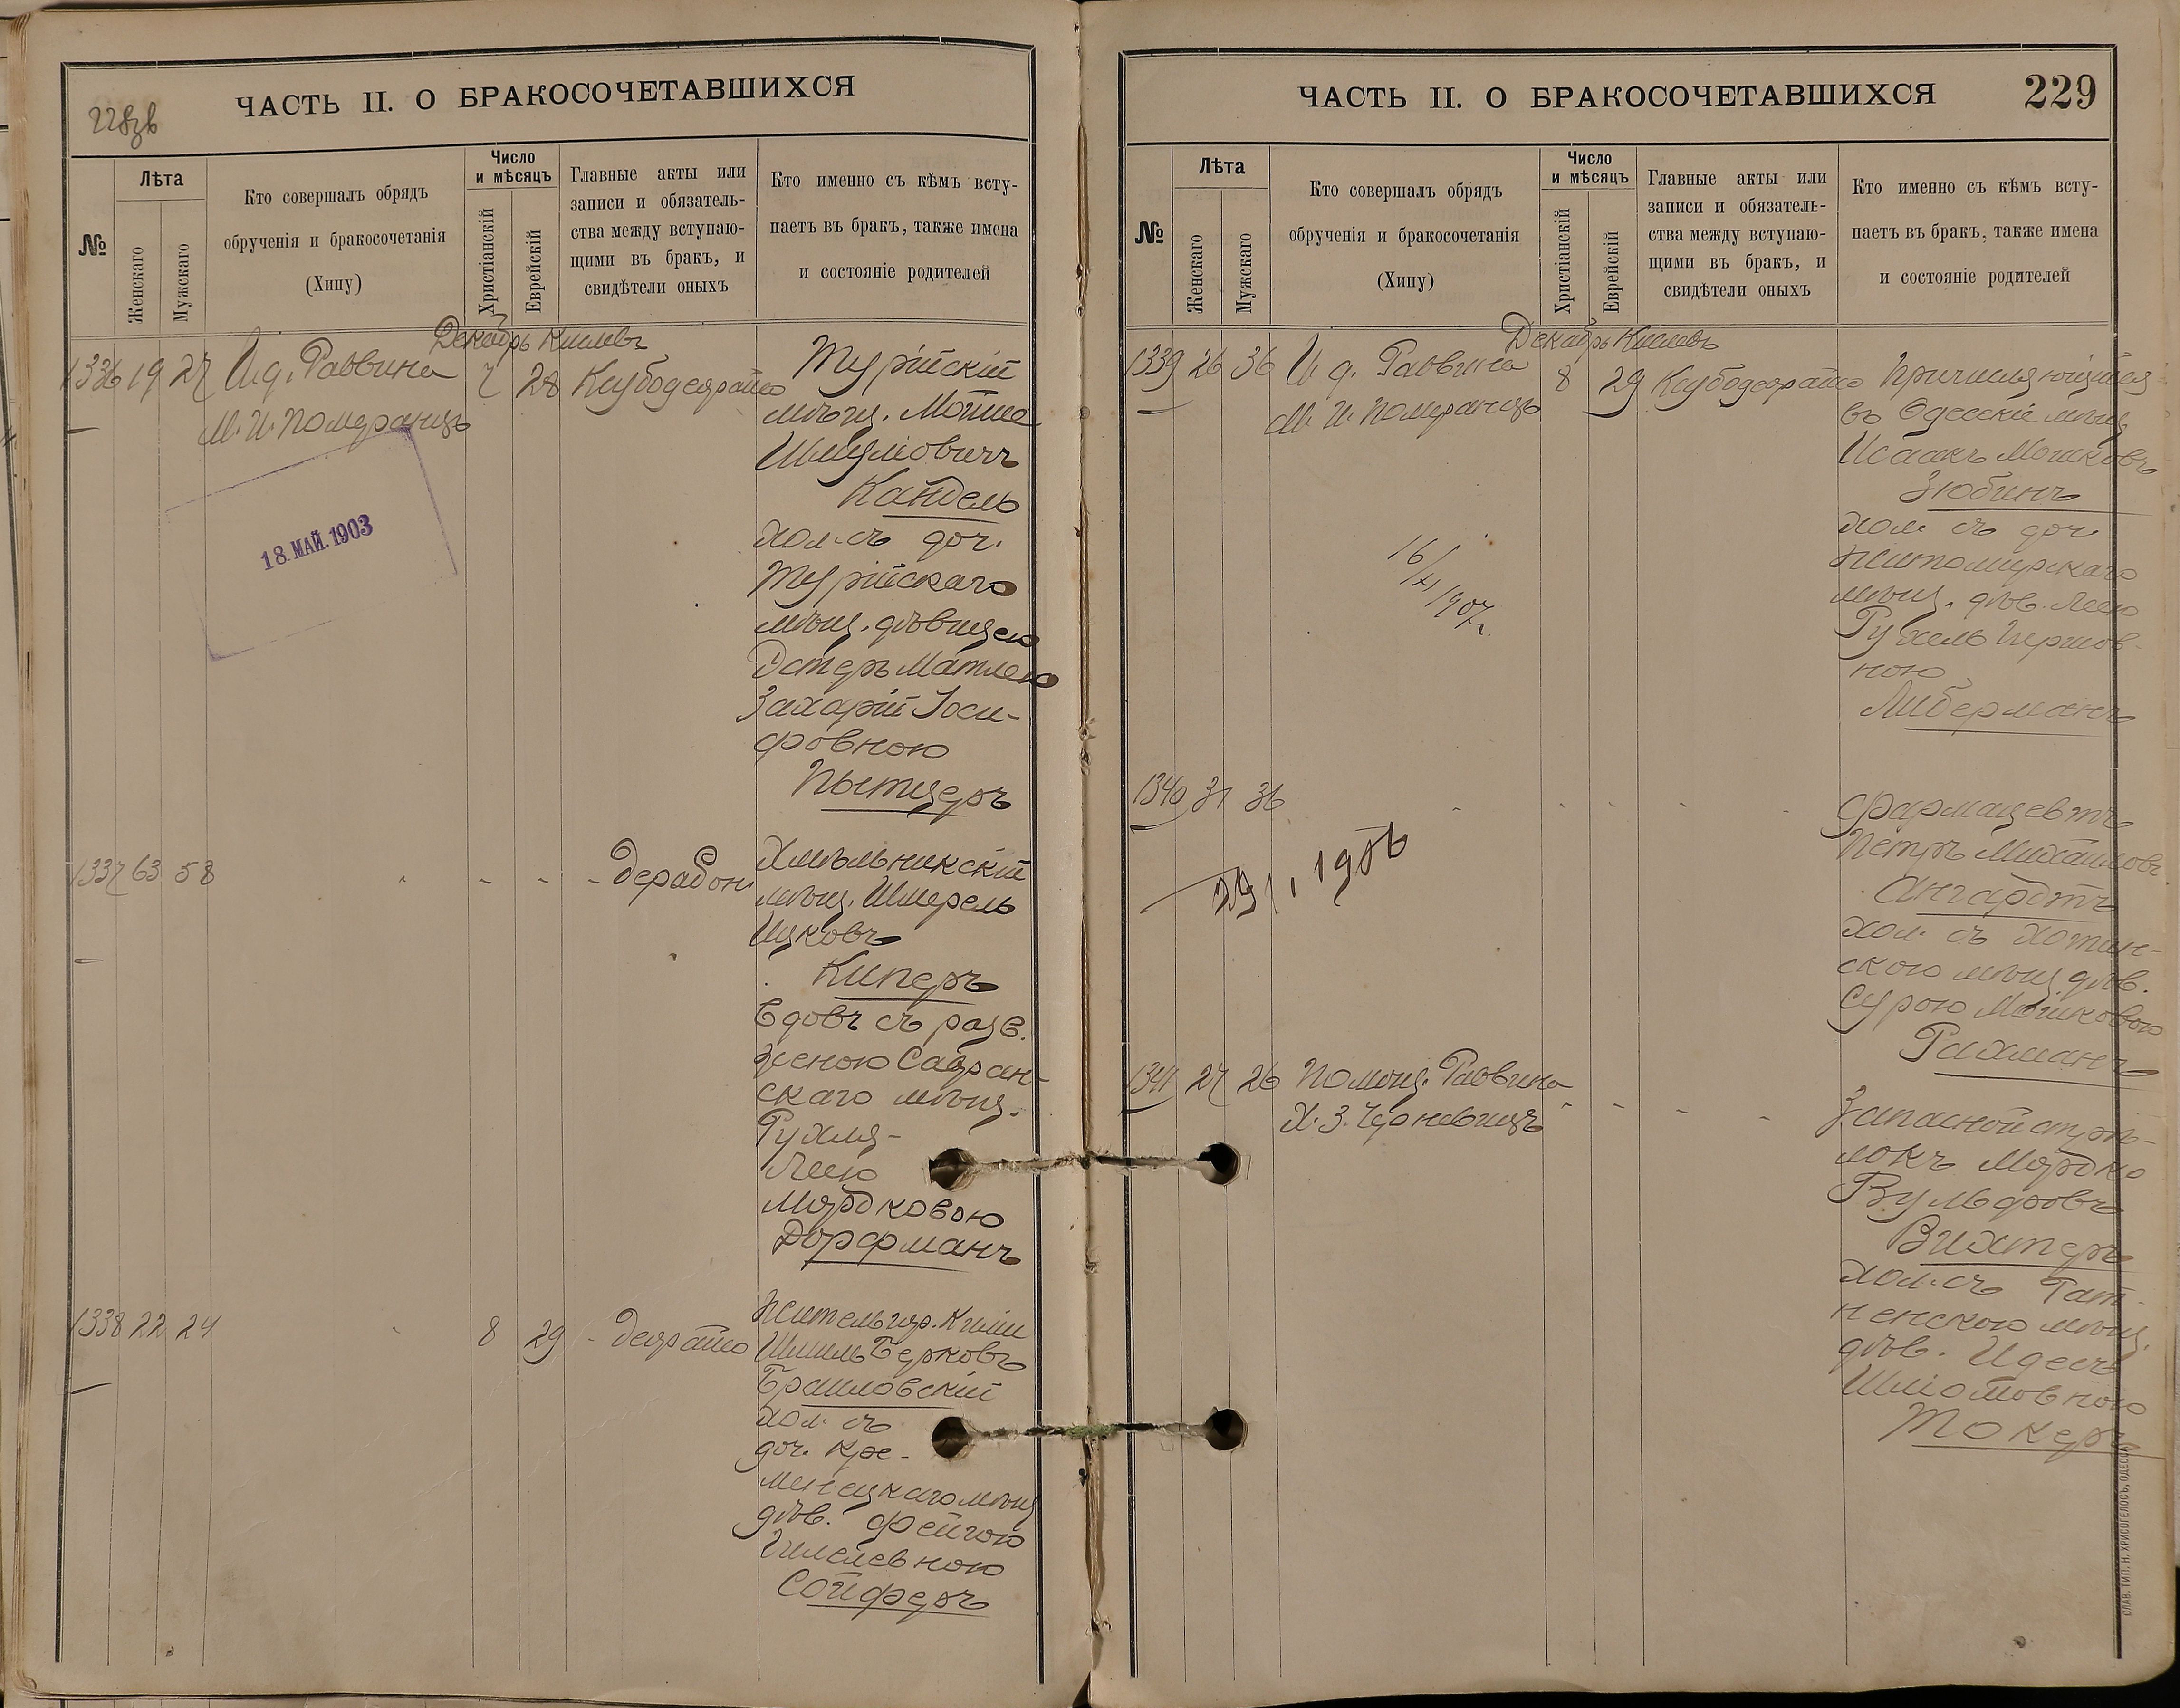 228зв
ЧАСТЬ II. О БРАКОСОЧЕТАВШИХСЯ
№
Лѣта
Женскаго
Мужскаго
Кто совершалъ обрядъ
обрученія и бракосочетанія
(Хипу)
Число
и мѣсяцъ
Христіанскій
Еврейскій
Главные акты или
записи и обязатель-
ства между вступаю-
щими въ бракъ, и
свидѣтели оныхъ
Кто именно съ кѣмъ всту-
паетъ въ бракъ, также имена
и состояніе родителей
Декабрь Кислевъ
1336 19 27 И.д. Раввина 7 28 Ксубодеорайто
М. И. Померанцъ
18. МАЙ. 1903
Турійскій
мѣщ. Мошко
Шмуліовичъ
Кандель
хол. съ доч.
Турійскаго
мѣщ. дѣвицею
Эстеръ Матлею
Захарій Іоси-
фовною
Пытцеръ
1337 63 58 - - - - Дерабонъ
Хмѣльникскій
мѣщ. Шмерель
Ицковъ
Киперъ
вдовъ съ разв.
женою Савран-
скаго мѣщ.
Рухля-
Леею
Мордковою
Дорфманъ
1338 22 24 - 8 29 - Деорайто
Житель гор. Киліи
Шмиль Берковъ
Браиловскій
хол. съ
доч. Кре-
менецкаго мѣщ
дѣв. Фейгою
Гилелевною
Сойферъ
ЧАСТЬ II. О БРАКОСОЧЕТАВШИХСЯ
229
№
Лѣта
Женскаго
Мужскаго
Кто совершалъ обрядъ
обрученія и бракосочетанія
(Хипу)
Число
и мѣсяцъ
Христіанскій
Еврейскій
Главные акты или
записи и обязатель-
ства между вступаю-
щими въ бракъ, и
свидѣтели оныхъ
Кто именно съ кѣмъ всту-
паетъ въ бракъ, также имена
и состояніе родителей
Декабрь Кислевъ
1339 26 36 И д. Раввина 8 29 Ксубодеорайто
М. И. Померанцъ
16/XI/1907г.
Причисляющійся
въ Одесскіе мѣщ
Исаакъ Мошковъ
Зюбинъ
хол. съ доч.
Житомирскаго
мѣщ. дѣв. Леею
Рухель Гершов-
ною
Либерманъ
1340 31 36 - - - - -
1906
Фармацевтъ
Петръ Михайловъ
Ангардтъ
хол. съ Хотин-
скою мѣщ дѣв.
Сурою Мошковою
Рахманъ
1341 27 26 Помощ. Раввина - - - -
Х. З. Черновицъ
Запасной стрѣ-
локъ Мордко
Вульфовъ
Вихтеръ
хол. съ Гат-
ненскою мѣщ.
дѣв. Идесъ
Шліомовною
Токеръ
СЛАВ. ТИП. Н. ХРИСОГЕЛОСЪ, ОДЕССА